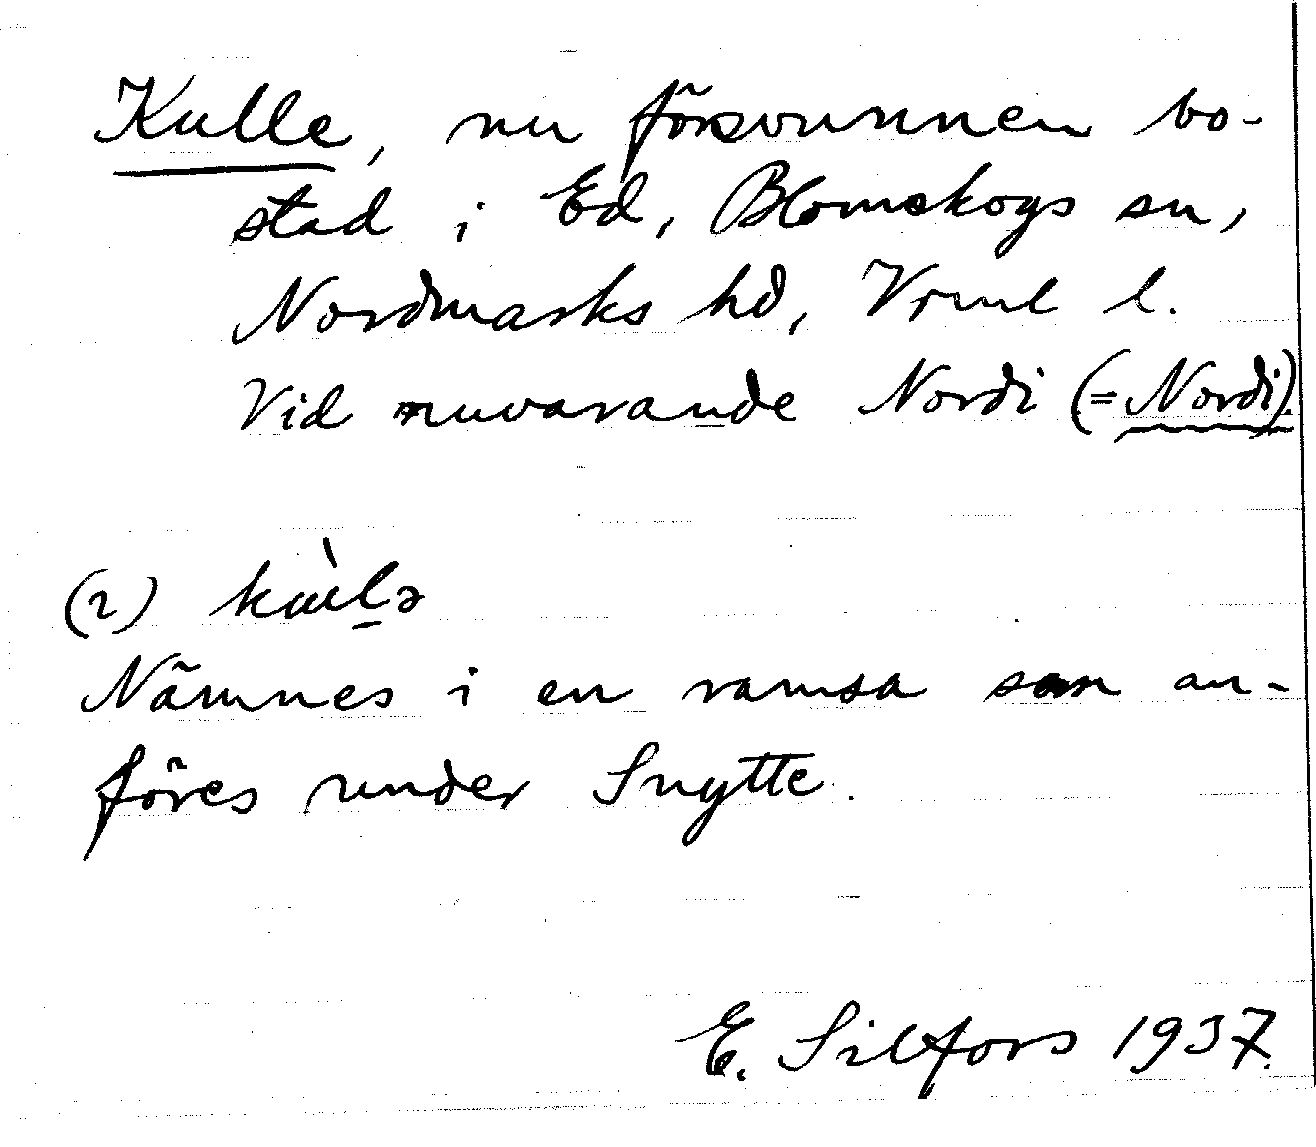 Kulle, nu försvunnen bo-
stad i Ed, Blomskogs sn,
Nordmarks hd, Vrml l.
Vid nuvarande Nordi (= Nordi).
(2)
Nämnes i en ramsa som an-
föres under Snytte.
E. Silfors 1937.